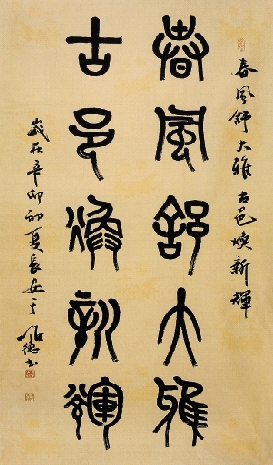 春風舒大雅 古邑煥新輝
春風舒大雅
古邑煥新輝
歲在辛卯初夏長安